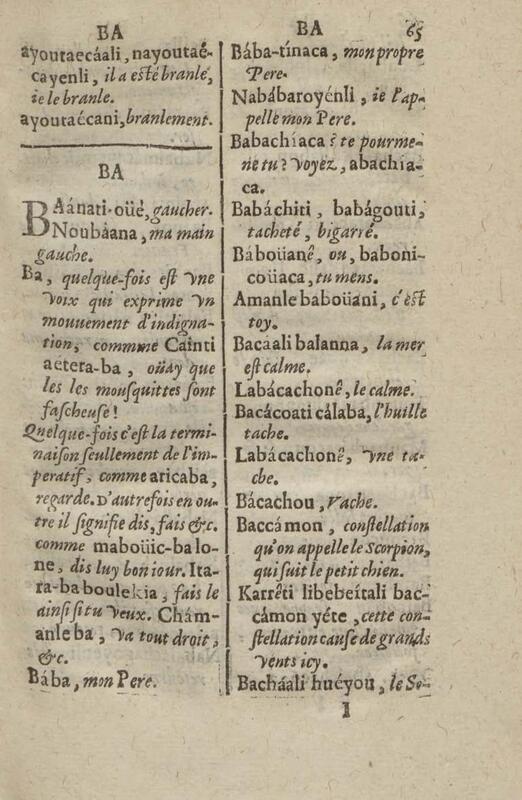 BA
ayoutaecáali, nayoutaé-
cayenli, il a esté branlé,
ie le branle.
ayoutaécani, branlement.
BA
BAánati-oüé, gaucher.
Noubáana, ma main
gauche.
Ba, quelque-fois est vne
voix qui exprime vn
mouuement d'indigna-
tion, commme Caínti
aetera-ba, oüay que
les les mousquittes sont
fascheuse!
Quelque-fois c'est la termi-
naison seullement de l'im-
peratif, comme aricaba,
regarde. D'autrefois en ou-
tre il signifie dis, fais &c.
comme maboüic-ba lo-
ne, dis luy bon iour. Ita-
ra-ba boulekia, fais le
ainsi si tu veux. Chám-
anle ba, va tout droit,
&c.
Bába, mon Pere.
BA 65
Bába-tínaca, mon propre
Pere.
Nabábaroyénli, ie l'ap-
pelle mon Pere.
Babachíaca? te pourme-
ne tu? voyez, abachía-
ca.
Babáchiti, babágouti,
tacheté, bigarré.
Báboüanê, ou, baboni-
coüaca, tu mens.
Amanle baboüani, c'est
toy.
Bacáali balanna, la mer
est calme.
Labácachonê, le calme.
Bacácoati cálaba, l'huille
tache.
Labácachonê, vne ta-
che.
Bácachou, Vache.
Baccámon, constellation
qu'on appelle le Scorpion,
qui suit le petit chien.
Karrêti libebeítali bac-
cámon yéte, cette con-
stellation cause de grands
vents icy.
Bacháali huéyou, le So-
I